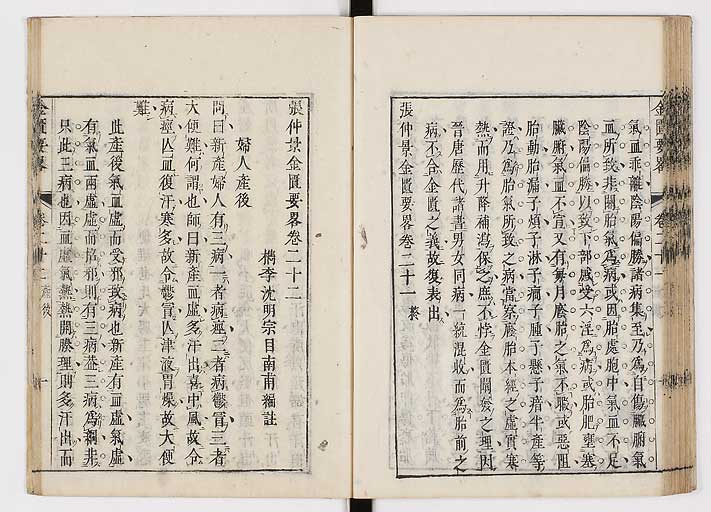 氣血乖離陰陽偏勝諸病集至乃爲自傷臟腑氣
血所致非關胎氣爲病或因胎處胞中氣血不足
陰陽偏勝以致下部感受六淫爲病或胎肥壅塞
臟腑氣血不宣又有每月廕胎之氣不暇或惡阻
胎動胎漏子煩子淋子癎子腫子懸子瘖半產等
證乃爲胎氣所致之病當察廕胎本經之虛實寒
熱而用升降補瀉保之庶不悖金匱開發之理因
晉唐歷代諸書男女同病一統混收而爲胎前之
病不合金匱之義故復表出
張仲景金匱要畧卷二十一 終
金匱要畧 卷二十一
張仲景金匱要畧卷二十二
檇李沈明宗目南甫編註
婦人產後
問曰新產婦人有三病一者病痙二者病鬱冒三者
大便難何謂也師曰新產血虛多汗出喜中風故令
病痙亾血復汗寒多故令鬱冒亾津液胃燥故大便
難
此產後氣血虛而受邪致病也新產有血虛氣虛
有氣血兩虛虛而招邪則有三病葢三病爲綱非
只此三病也因血虛氣熱熱開腠理則多汗出而
金匱要畧 卷二十二 產後 一